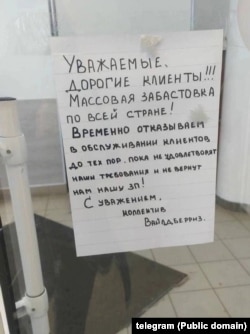 УВАЖАЕМЫЕ,
ДОРОГИЕ КЛИЕНТЫ!!!
МАССОВАЯ ЗАБАСТОВКА
ПО ВСЕЙ СТРАНЕ!
ВРЕМЕННО ОТКАЗЫВАЕМ
В ОБСЛУЖИВАНИИ КЛИЕНТОВ
ДО ТЕХ ПОР, ПОКА НЕ УДОВЛЕТВОРЯТ
НАШИ ТРЕБОВАНИЯ И НЕ ВЕРНУТ
НАМ НАШУ ЗП!
С УВАЖЕНИЕМ,
КОЛЛЕКТИВ
ВАЙЛДБЕРРИЗ.
telegram (Public domain)